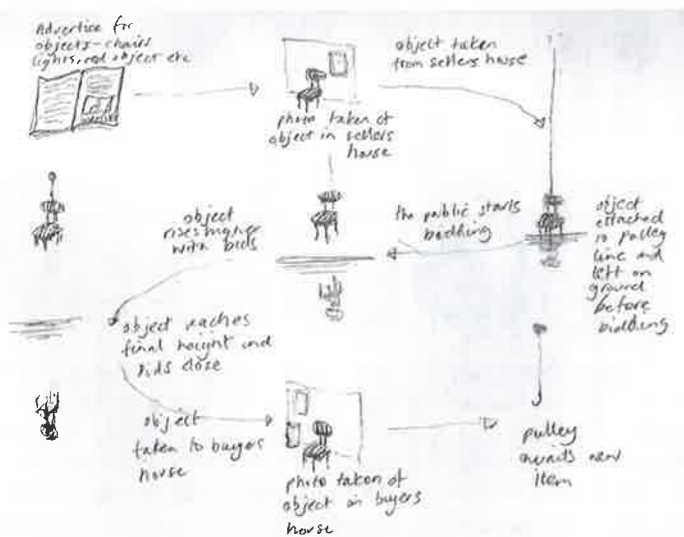 Advertise for
objects - chairs
lights, red object etc
photo taken of
object in sellers
house
object taken
from sellers house
object
attached
to pulley
line and
left on
ground
before
bidding
the public starts
bidding
object
rises higher
with bids
object reaches
final height and
bids close
object
taken to buyers
house
photo taken of
object in buyers
house
pulley
awaits new
item